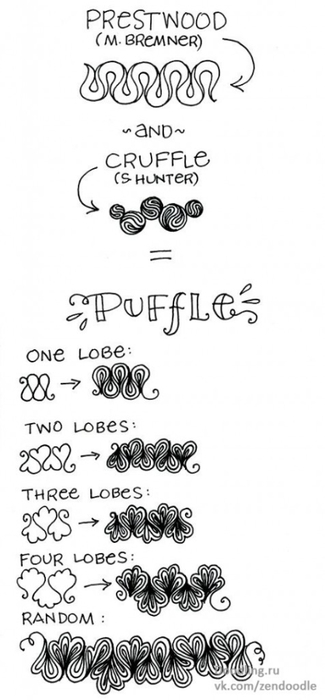 PRESTWOOD
(M. BREMNER)
~AND~
CRUFFLE
(S HUNTER)
=
PUFFLE
ONE LOBE:
TWO LOBES:
THREE LOBES:
FOUR LOBES:
RANDOM:
vk.com/zendoodle